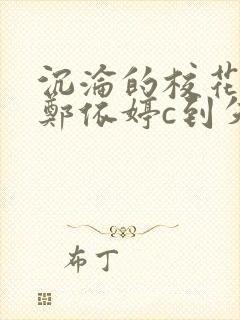 沉沦的校花
郑依婷c到
布丁